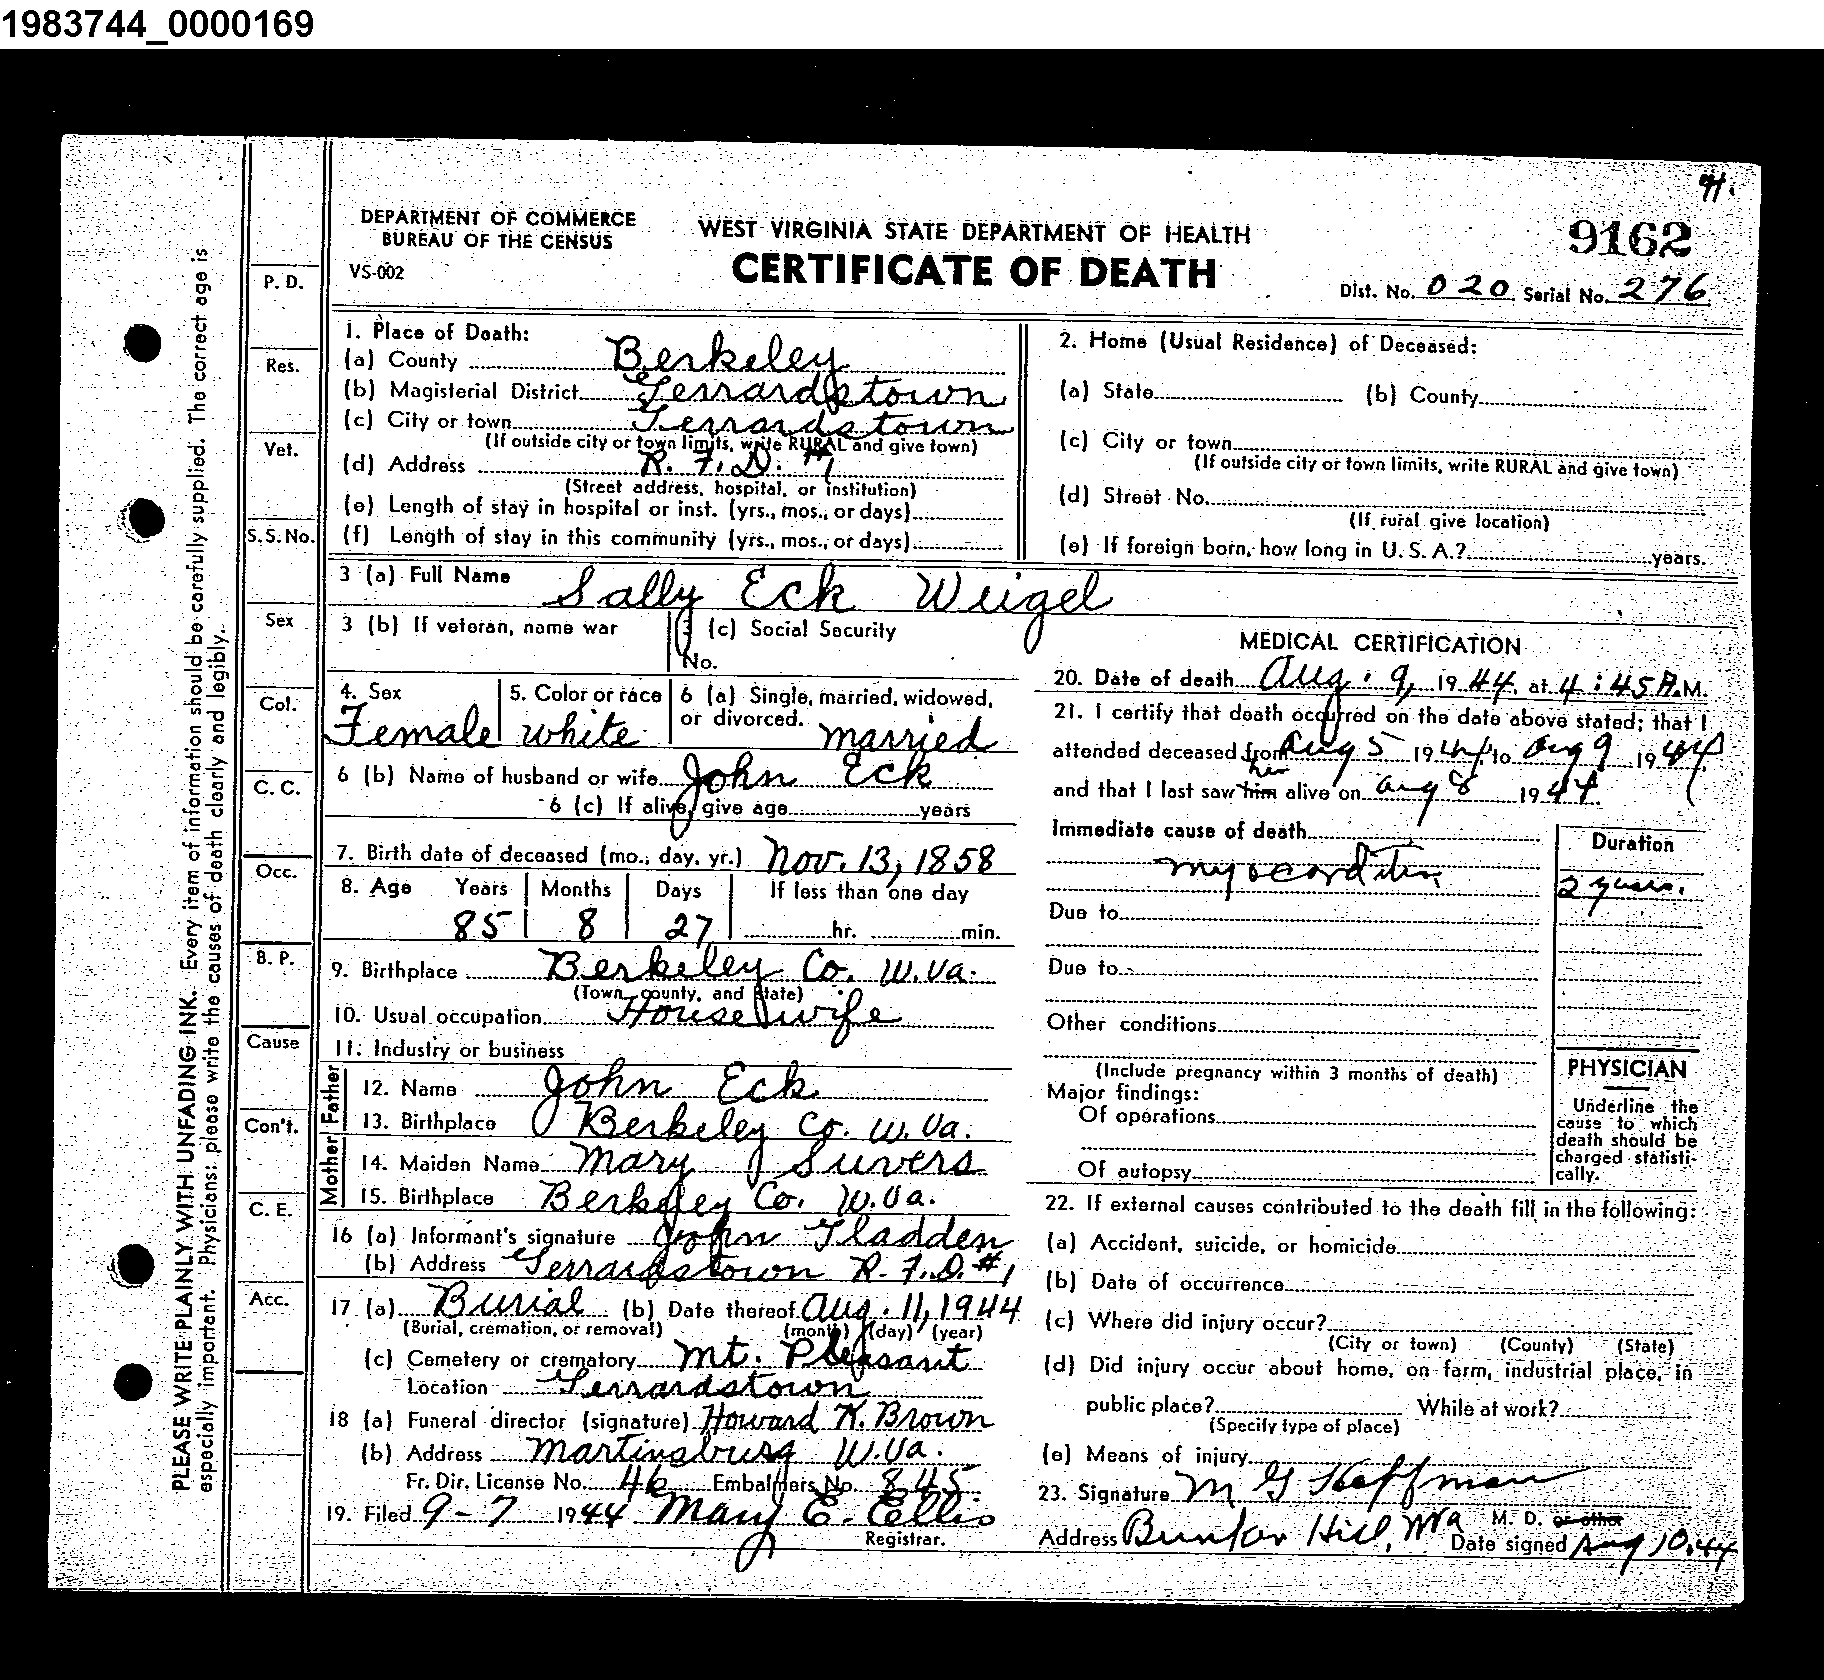 1983744_0000169
H.
DEPARTMENT OF COMMERCE
BUREAU OF THE CENSUS
VS-002
WEST VIRGINIA STATE DEPARTMENT OF HEALTH
CERTIFICATE OF DEATH
9162
Dist. No. 020 Serial No. 276
PLEASE WRITE PLAINLY WITH UNFADING INK. Every item of information should be carefully supplied. The correct age is
especially important. Physicians: please write the causes of death clearly and legibly.
P. D.
Res.
Vet.
S. S. No.
Sex
Col.
C. C.
Occ.
B. P.
Cause
Con't.
C. E.
Acc.
1. Place of Death:
(a) County Berkeley
(b) Magisterial District Gerrardstown
(c) City or town Gerrardstown
(If outside city or town limits, write RURAL and give town)
(d) Address R. F. D. #1
(Street address, hospital, or institution)
(e) Length of stay in hospital or inst. (yrs., mos., or days)
(f) Length of stay in this community (yrs., mos., or days)
2. Home (Usual Residence) of Deceased:
(a) State (b) County
(c) City or town
(If outside city or town limits, write RURAL and give town)
(d) Street No.
(If rural give location)
(e) If foreign born, how long in U. S. A.? years.
3 (a) Full Name Sally Eck Weigel
3 (b) If veteran, name war
3 (c) Social Security
No.
4. Sex Female
5. Color or race white
6 (a) Single, married, widowed,
or divorced. married
6 (b) Name of husband or wife John Eck
6 (c) If alive, give age years
7. Birth date of deceased (mo., day, yr.) Nov. 13, 1858
8. Age Years Months Days If less than one day
85 8 27 hr. min.
9. Birthplace Berkeley Co. W. Va.
(Town, county, and state)
10. Usual occupation House wife
11. Industry or business
Father
12. Name John Eck
13. Birthplace Berkeley Co. W. Va.
Mother
14. Maiden Name Mary Suvers
15. Birthplace Berkeley Co. W. Va.
16 (a) Informant's signature John Gladden
(b) Address Gerrardstown R. F. D. #1
17 (a) Burial (b) Date thereof Aug. 11, 1944
(Burial, cremation, or removal) (month) (day) (year)
(c) Cemetery or crematory Mt. Pleasant
Location Gerrardstown
18 (a) Funeral director (signature) Howard K. Brown
(b) Address Martinsburg W. Va.
Fr. Dir. License No. 46 Embalmers No. 845
19. Filed 9-7 1944 Mary E. Ellis
Registrar.
MEDICAL CERTIFICATION
20. Date of death Aug. 9, 1944 at 4:45 P.M.
21. I certify that death occurred on the date above stated; that I
attended deceased from Aug 5 1944 to Aug 9 1944
her
and that I last saw him alive on Aug 8 1944
Immediate cause of death
Duration
myocarditis
2 years.
Due to
Due to
Other conditions
(Include pregnancy within 3 months of death)
Major findings:
Of operations
Of autopsy
PHYSICIAN
Underline the
cause to which
death should be
charged statisti-
cally.
22. If external causes contributed to the death fill in the following:
(a) Accident, suicide, or homicide
(b) Date of occurrence
(c) Where did injury occur?
(City or town) (County) (State)
(d) Did injury occur about home, on farm, industrial place, in
public place? While at work?
(Specify type of place)
(e) Means of injury
23. Signature M G Hoffman
M. D. or other
Address Bunker Hill, WVa
Date signed Aug 10, 44